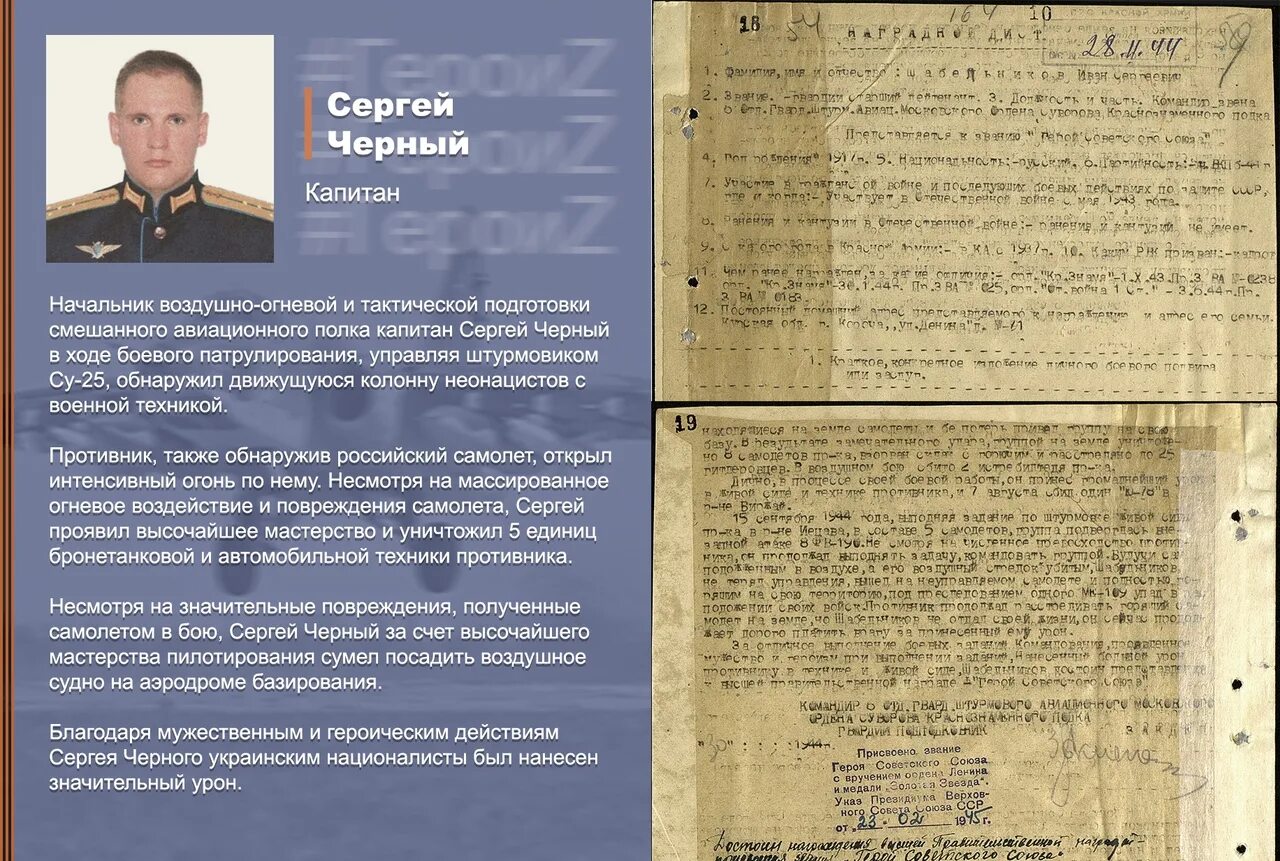 #ГероиZ
Сергей
#ГероиZ
Черный
Капитан
#ГероиZ
Начальник воздушно-огневой и тактической подготовки
смешанного авиационного полка капитан Сергей Черный
в ходе боевого патрулирования, управляя штурмовиком
Су-25, обнаружил движущуюся колонну неонацистов с
военной техникой.
Противник, также обнаружив российский самолет, открыл
интенсивный огонь по нему. Несмотря на массированное
огневое воздействие и повреждения самолета, Сергей
проявил высочайшее мастерство и уничтожил 5 единиц
бронетанковой и автомобильной техники противника.
Несмотря на значительные повреждения, полученные
самолетом в бою, Сергей Черный за счет высочайшего
мастерства пилотирования сумел посадить воздушное
судно на аэродроме базирования.
Благодаря мужественным и героическим действиям
Сергея Черного украинским националисты был нанесен
значительный урон.
18 54 164 10
НАГРАДНОЙ ЛИСТ 28.11.44 59
1. Фамилия, имя и отчество: Шабельников, Иван Сергеевич
2. Звание.-гвардии старший лейтенант. 3. Должность и часть. Командир звена
6 Отд.Гвард.Штурм.Авиац.Московского Ордена Суворова,Краснознаменного полка
Представляется к званию "Герой Советского Союза"
4. Год рождения 1917г. 5. Национальность:-русский. 6.Партийность:-
7. Участие в гражданской войне и последующих боевых действиях по защите СССР,
где и когда:- Участвует в Отечественной войне с мая 1943 года.
8. Ранения и контузии в Отечественной войне:- ранений и контузий не имеет.
9. С какого года в Красной Армии:- в КА с 1937г. 10. Каким РВК призван:-кадров
11. Чем ранее награжден,за какие отличия:- орд."Кр.Знамя"-1.X.43.Пр.3 ВА № 0238
орд. "Кр.Знамя"-30.1.44г. Пр.3 ВА № 025, орд."От.война 1 ст." - 3.6.44г.Пр.
3 ВА № 0183.
12. Постоянный домашний адрес представляемого к награждению и адрес его семьи.
Курская обл. г. Короча,,ул.Ленина д. № 71
1. Краткое,конкретное изложение личного боевого подвига
или заслуг.
19
находящиеся на земле самолеты и без потерь привел группу на свою
базу. В результате замечательного удара,группой на земле уничтоже-
но 8 самолетов пр-ка, взорван склад с горючим и расстреляно до 25
гитлеровцев. В воздушном бою сбито 2 истребителя пр-ка.
Лично,в процессе своей боевой работы,он принес громаднейший урон
в живой силе и технике противника,и 7 августа сбил один
р-не Биржай.
15 сентября 1944 года, выполняя задание по штурмовке живой силы
пр-ка в р-не Иецава,в составе 5 самолетов,группа подверглась вне-
запной атаке 8 ФВ-190.Не смотря на численное превосходство против-
ника,он продолжал выполнять задачу,командовать группой.Будучи
подожженным в воздухе,а его воздушный стрелок убитым,Шабельников,
не теряя управления,вышел на неуправляемом самолете и полностью го-
рящим на свою территорию,под преследованием одного МЕ-109 упал в рас-
положении своих войск.Противник продолжал расстреливать горящий са-
молет на земле,но Шабельников не отдал своей жизни,он сейчас продол-
жает дорого платить врагу за принесенный ему урон.
За отличное выполнение боевых заданий Командования,проявленное
мужество и героизм при выполнении заданий,нанесенный большой урон
противнику в технике и живой силе,Шабельников достоин представления
к высшей правительственной награде -"Герой Советского Союза".
КОМАНДИР 6 ОТД.ГВАРД.ШТУРМОВОГО АВИАЦИОННОГО МОСКОВСКОГО
ОРДЕНА СУВОРОВА КРАСНОЗНАМЕННОГО ПОЛКА
ГВАРДИИ ПОДПОЛКОВНИК
"30" 1944г.
Присвоено звание
Героя Советского Союза
с вручением ордена Ленина
и медали „Золотая Звезда".
Указ Президиума Верхов-
ного Совета Союза ССР
от „23" 02 1945г.
Достоин награждения высшей Правительственной наградой
"Герой Советского Союза"